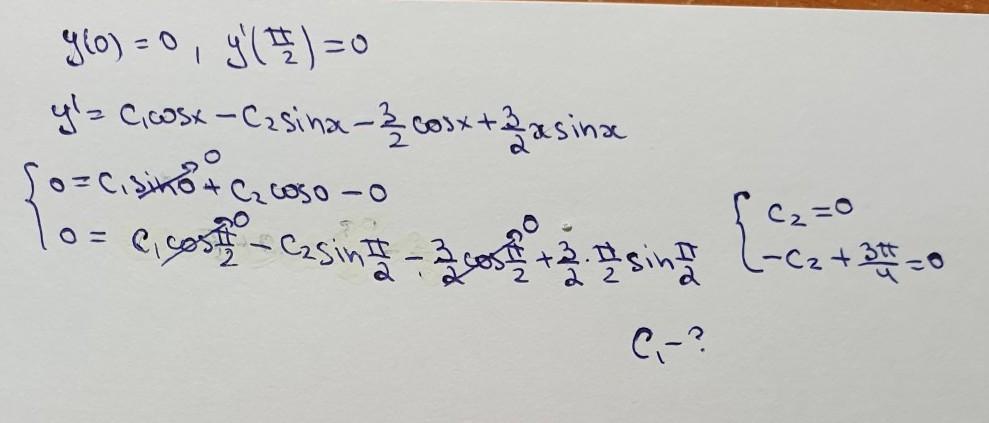 y(0) = 0, y'(π/2) = 0
y' = C₁cosx − C₂sinx − 3/2 cosx + 3/2 x sinx
{ 0 = C₁sin0→0 + C₂cos0 − 0
0 = C₁cosπ/2→0 − C₂sinπ/2 − 3/2 cosπ/2→0 + 3/2 · π/2 sinπ/2
{ C₂ = 0
−C₂ + 3π/4 = 0
C₁ − ?